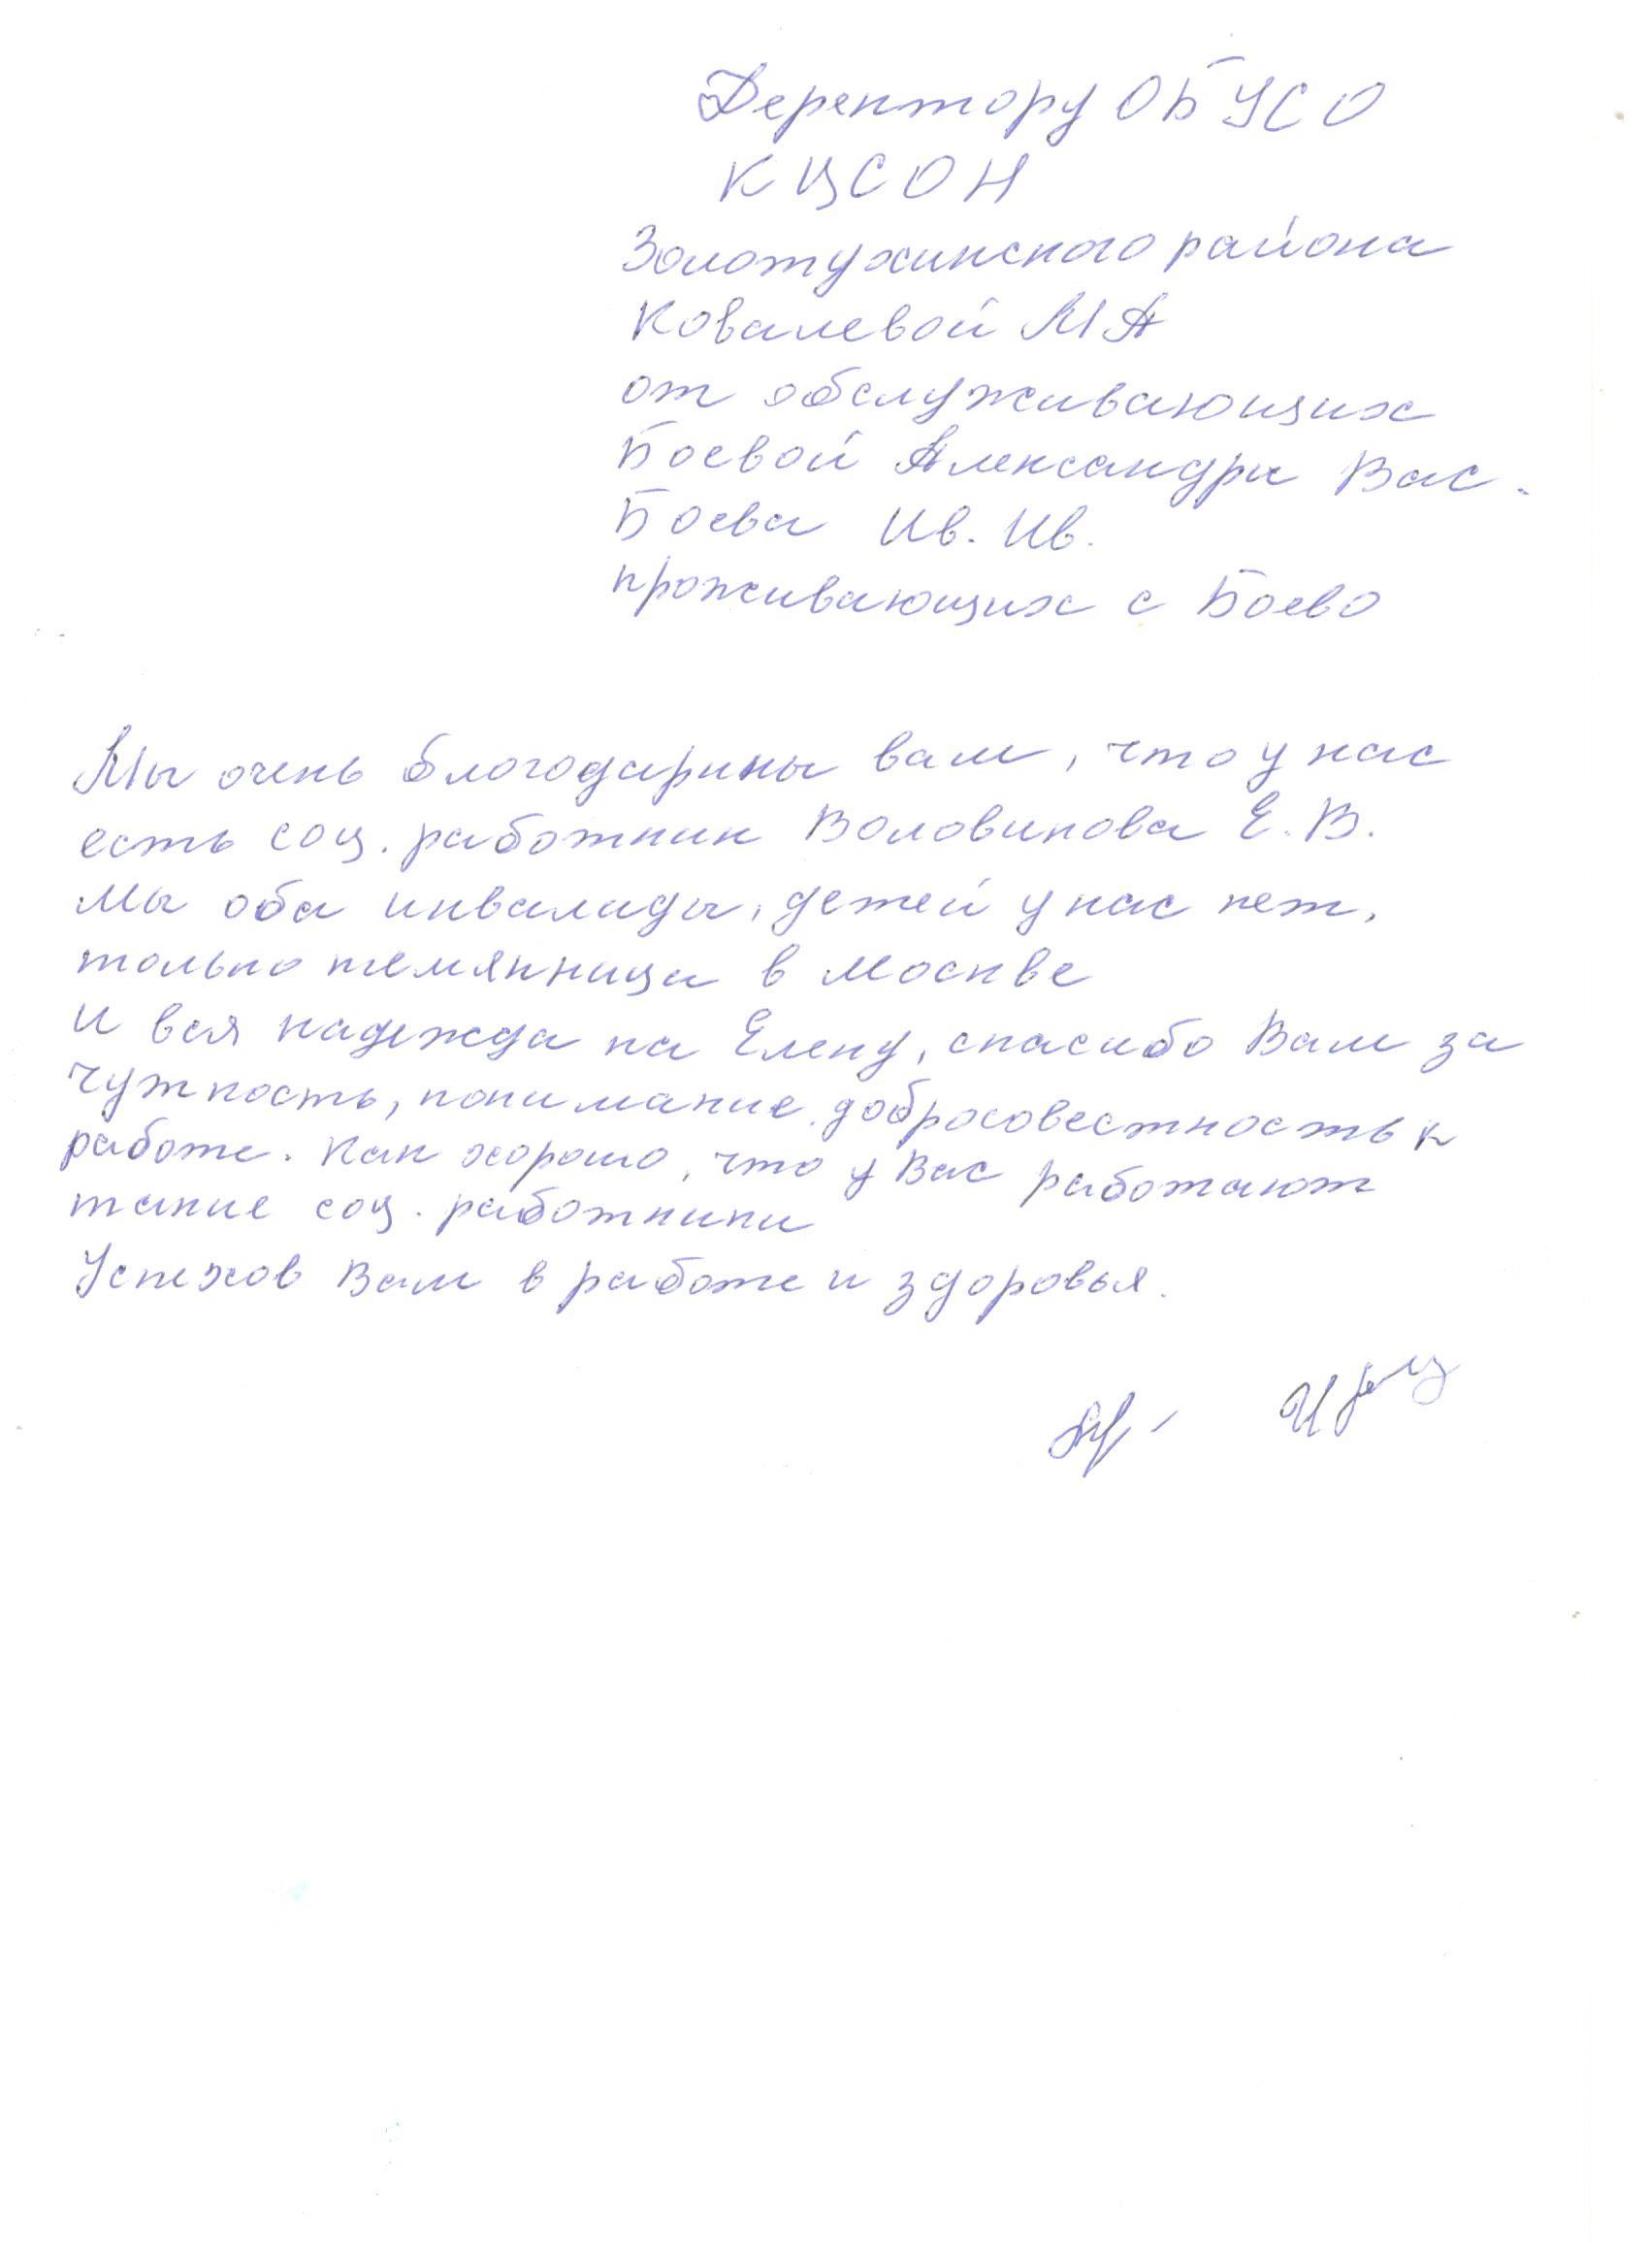 Деректору ОБУСО
КЦСОН
Золотухинского района
Ковалевой МА
от обслуживающих
Боевой Александры Вас.
Боева Ив. Ив.
проживающих с Боево
Мы очень благодарины вам, что у нас
есть соц. работник Воловикова Е. В.
Мы оба инвалиды, детей у нас нет,
только племянница в Москве
И вся надежда на Елену, спасибо Вам за
чужность, понимание, добросовестность к
работе. Как хорошо, что у Вас работают
такие соц. работники
Успехов Вам в работе и здоровья.